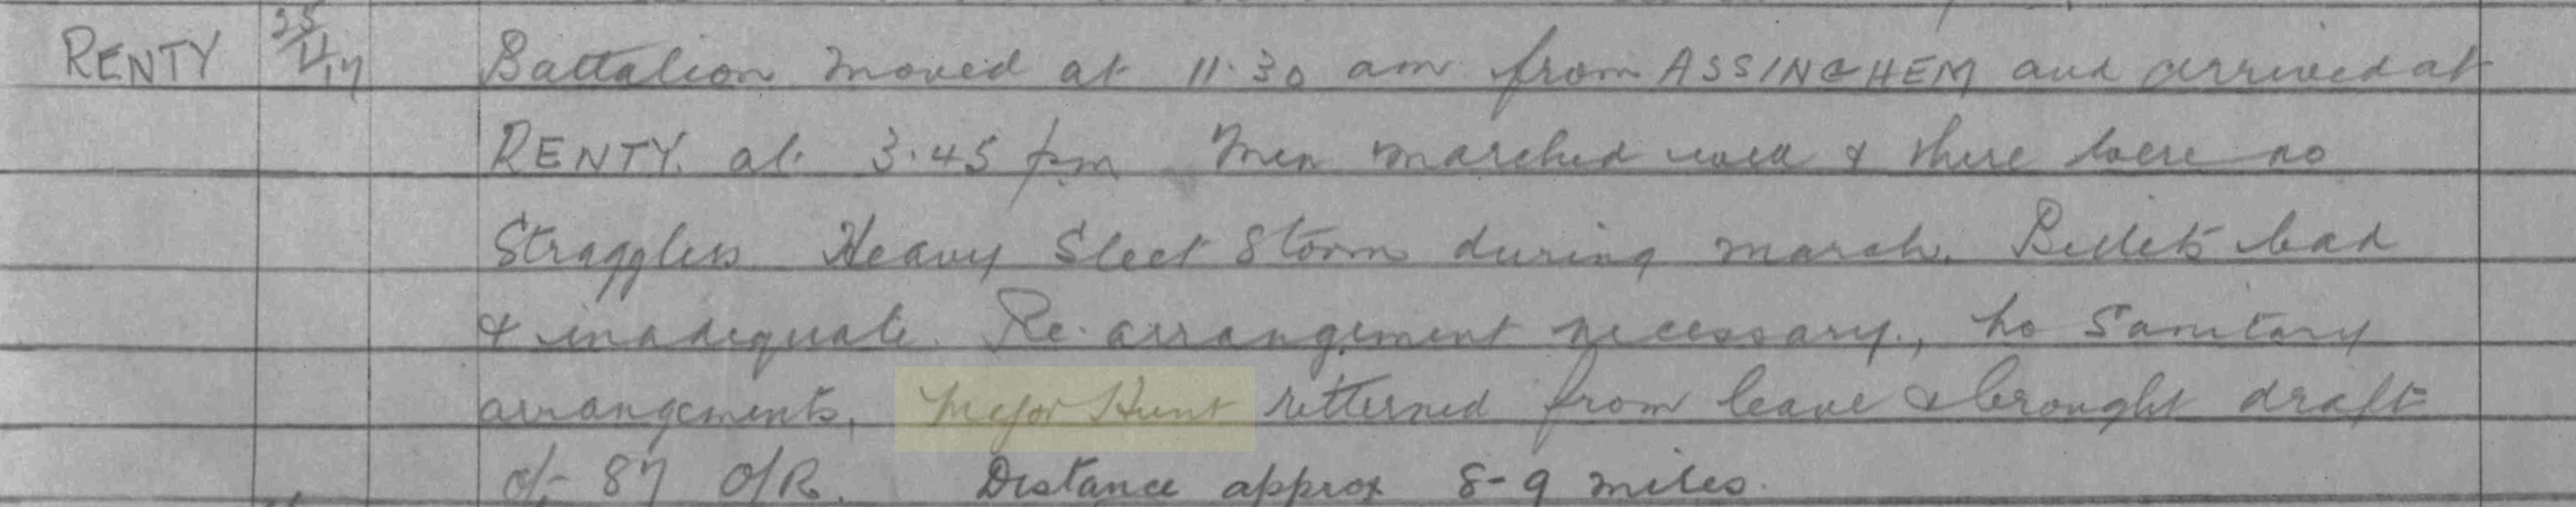 RENTY 25/11/17 Battalion moved at 11.30 am from ASSINGHEM and arrived at
RENTY. at. 3.45 pm Men marched well & there were no
Stragglers Heavy Sleet Storm during march. Billets bad
& inadequate. Re-arrangement necessary., no Sanitary
arrangements, Major Hunt returned from leave & brought draft
of 87 O/R. Distance approx 8-9 miles.